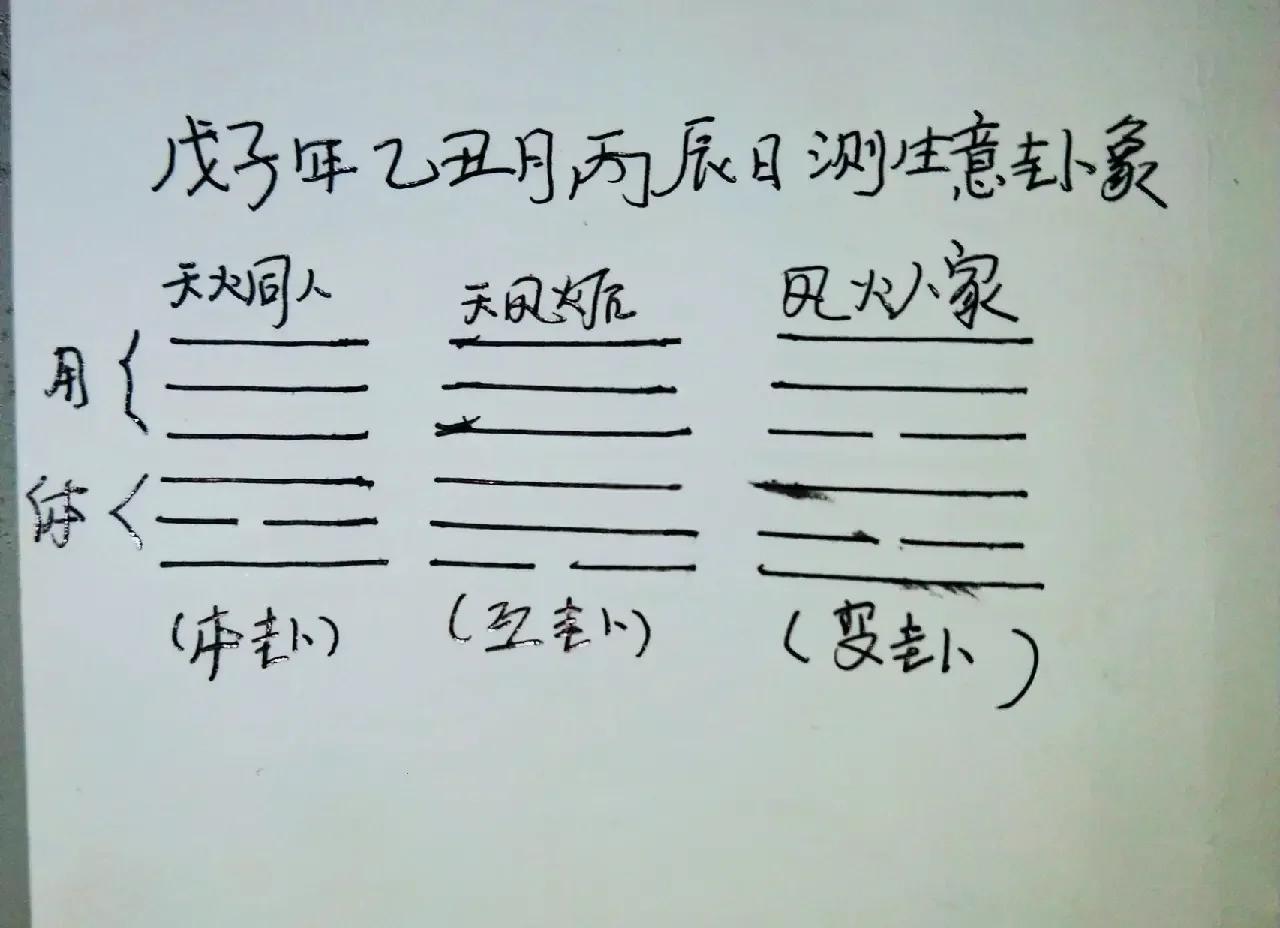 戊子年乙丑月丙辰日测生意卦象
天火同人 天风姤 风火人家
用
体
(本卦) (互卦) (变卦)